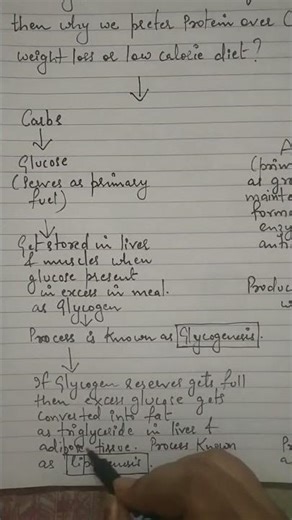 then why we prefer Protein over C
weight loss or low calorie diet?
Carbs
Glucose
(Serves as primary
fuel)
Get stored in liver
& muscles when
glucose present
in excess in meal.
as Glycogen
Process is known as Glycogenesis.
If Glycogen reserves gets full
then excess glucose gets
converted into fat
as triglyceride in liver &
adipose tissue. Process known
as Lipogenesis.
A
(prim
as gro
mainte
forma
enzy
anti
Produc
w